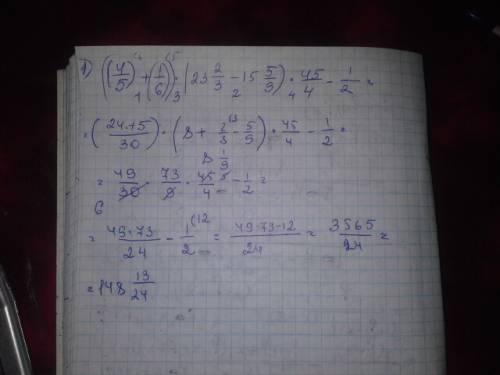 1) ((4/5) + (1/6)) · (23 2/3 − 15 5/9) · 45/4 − 1/2 =
= (24+5/30) · (8 + 2/3 − 5/9) · 45/4 − 1/2 =
8 1/9
= 49/30 · 73/9 · 45/4 − 1/2 =
6
= 49·73/24 − 1/2 (12 = 49·73−12/24 = 3565/24 =
= 148 13/24